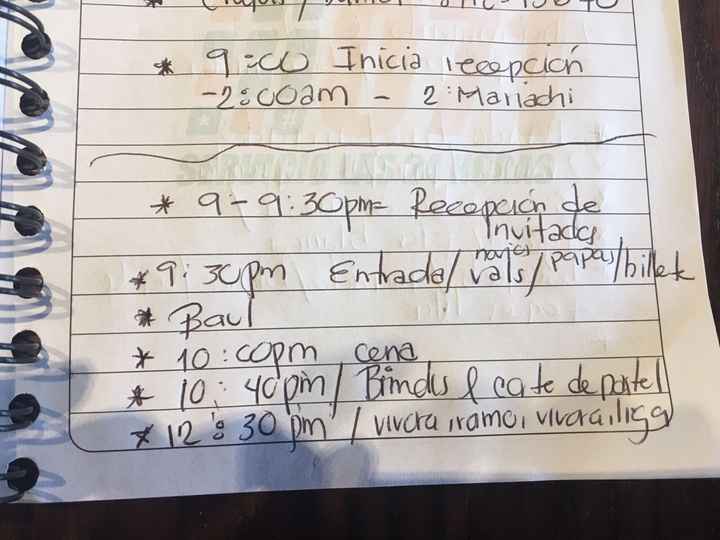 * 9:00 Inicia recepción
-2:00am - 2:Mariachi
* 9-9:30pm= Recepción de
Invitados
novios
* 9:30pm Entrada/vals/papas/billete
* Baul
* 10:00pm cena
* 10:40pm/ Brindis & cate de pastel
* 12:30 pm / vivora, ramo, vivora, liga